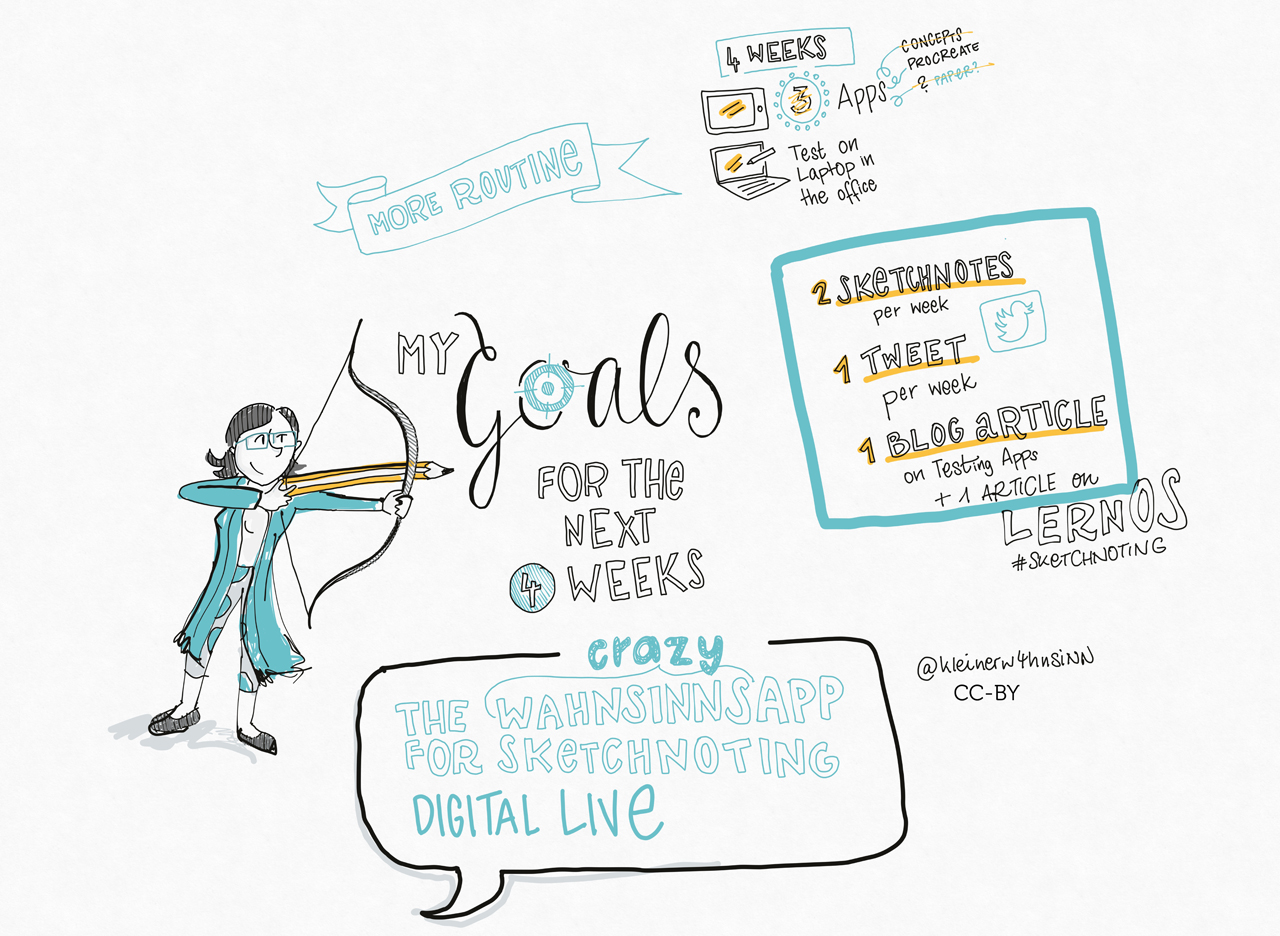 4 WEEKS
3 Apps
CONCEPTS
PROCREATE
? PAPER?
Test on
Laptop in
the office
MORE ROUTINE
2 SKETCHNOTES
per week
1 TWEET
per week
1 BLOG ARTICLE
on Testing Apps
+ 1 ARTICLE on
LERNOS
#SKETCHNOTING
MY Goals
FOR THE
NEXT
4 WEEKS
crazy
THE WAHNSINNSAPP
FOR SKETCHNOTING
DIGITAL LIVE
@kleinerw4hnsiNN
CC-BY